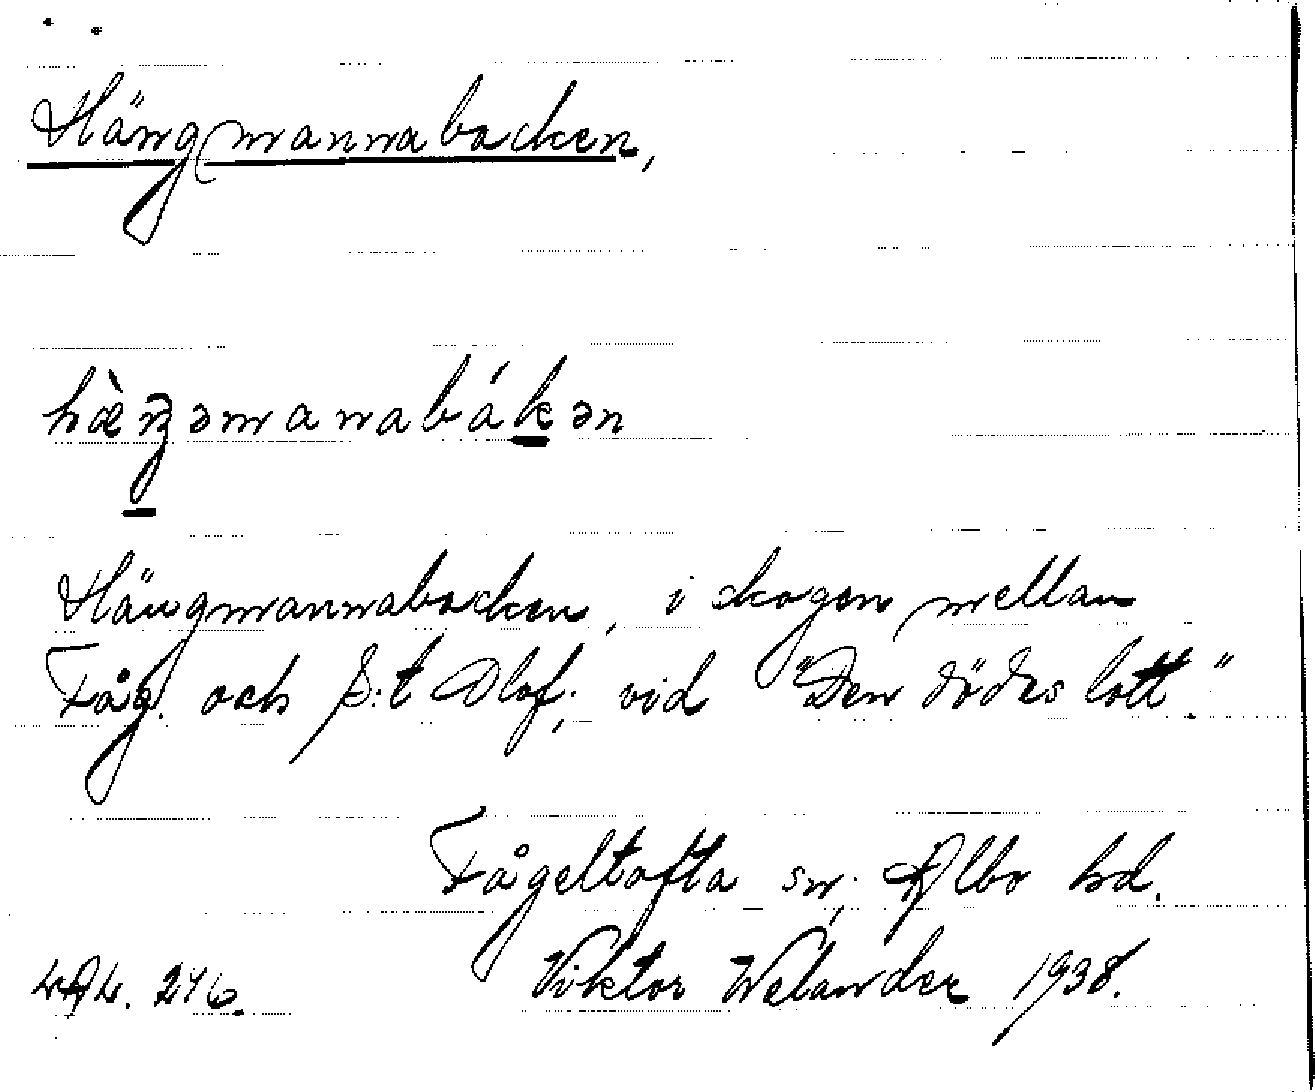 Hängmannabacken,
hæ̀ŋəmanabákən
Hängmannabacken, i skogen mellan
Fåg. och S:t Olof, vid "Den dödes lott."
Fågeltofta sn, Albo hd.
LAL. 246. Viktor Welander 1938.